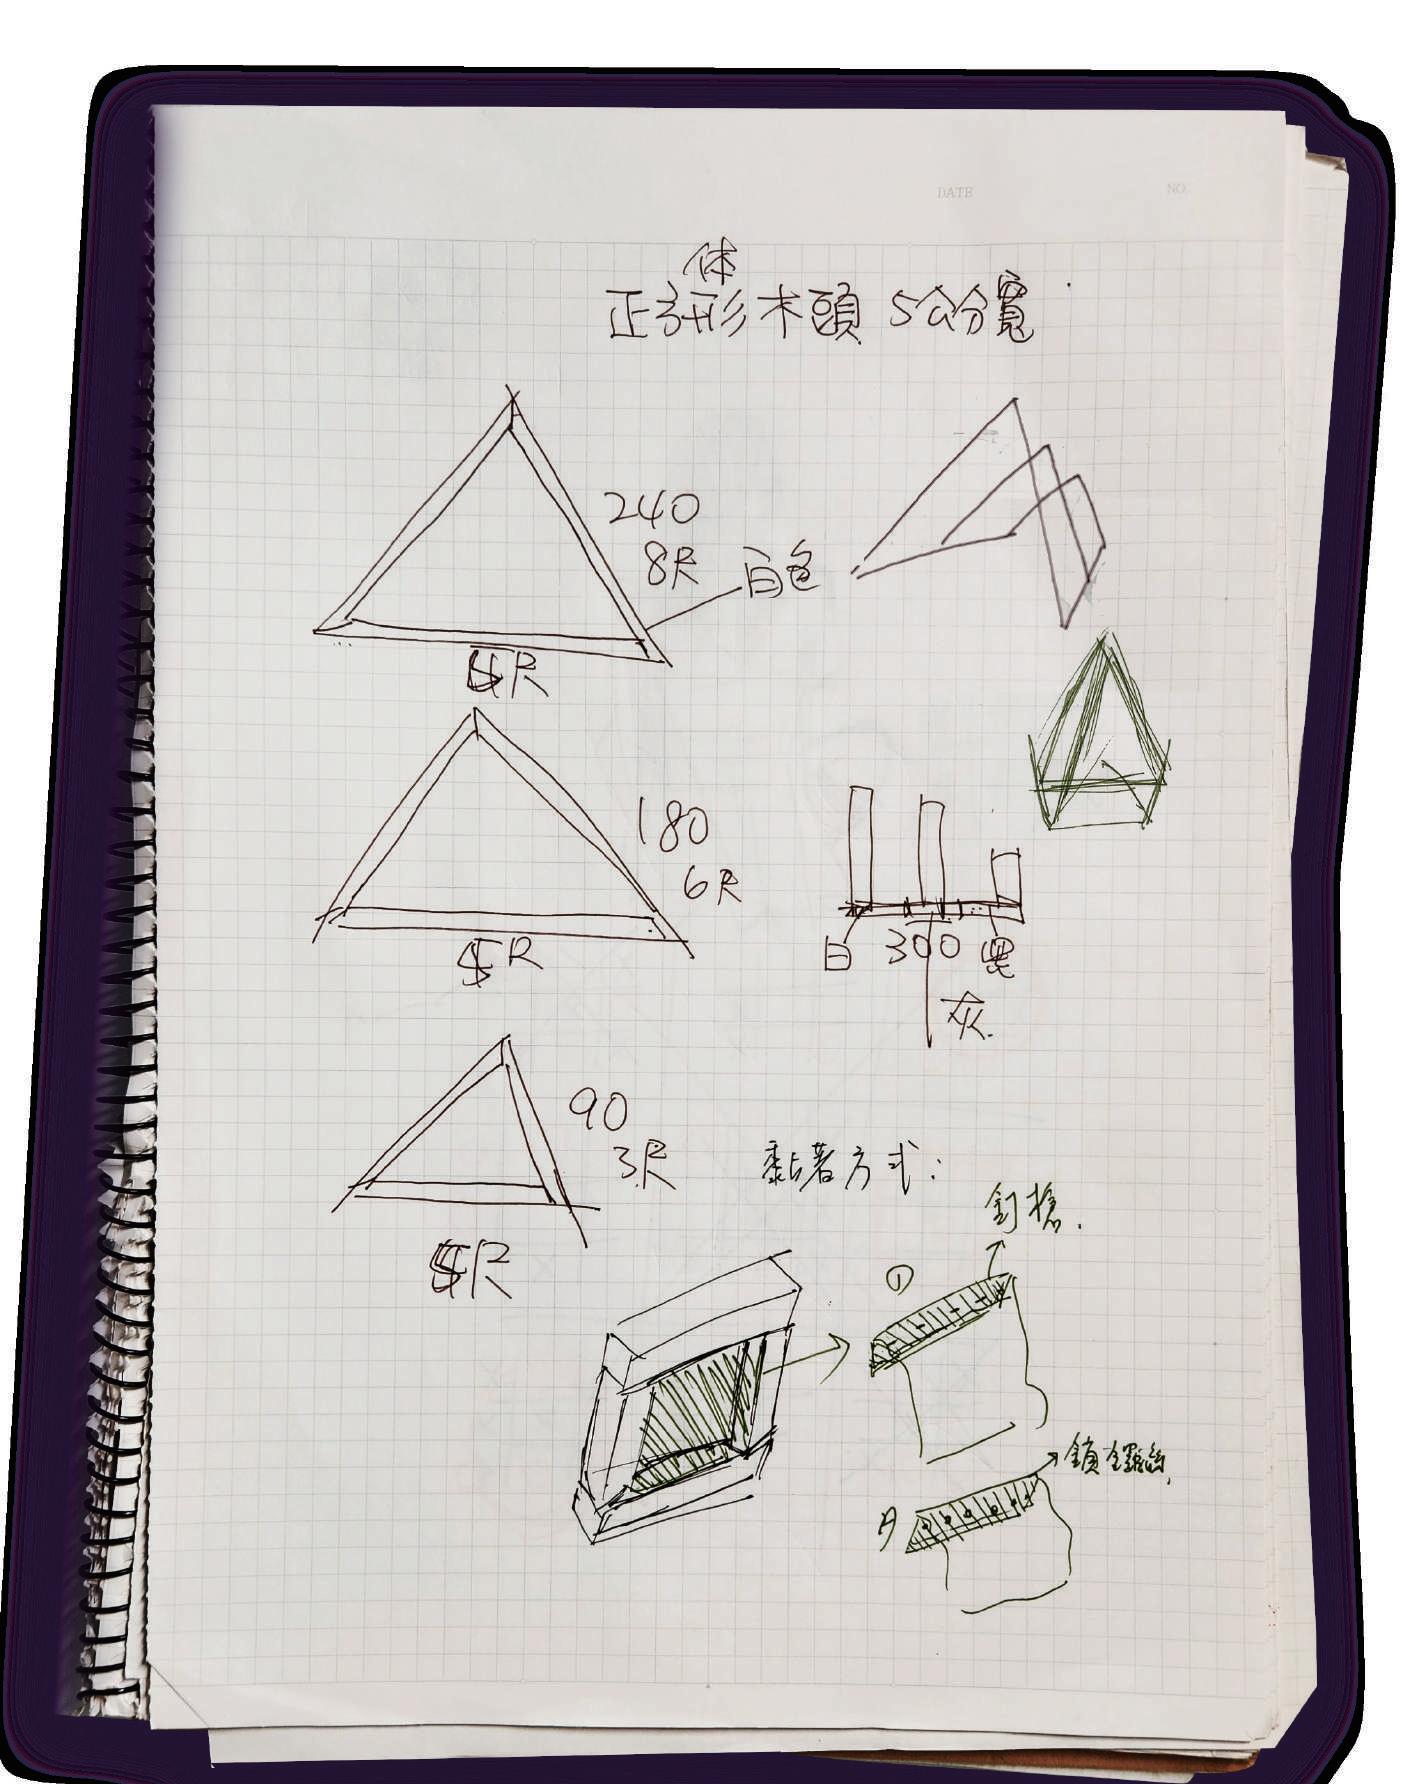 DATE
NO.
体
正方形木頭 5公分寬
240
8尺
白色
5尺
180
6尺
5尺
白 300 黑
灰
90
3尺
5尺
黏著方式：
釘槍
①
鎖鏍絲